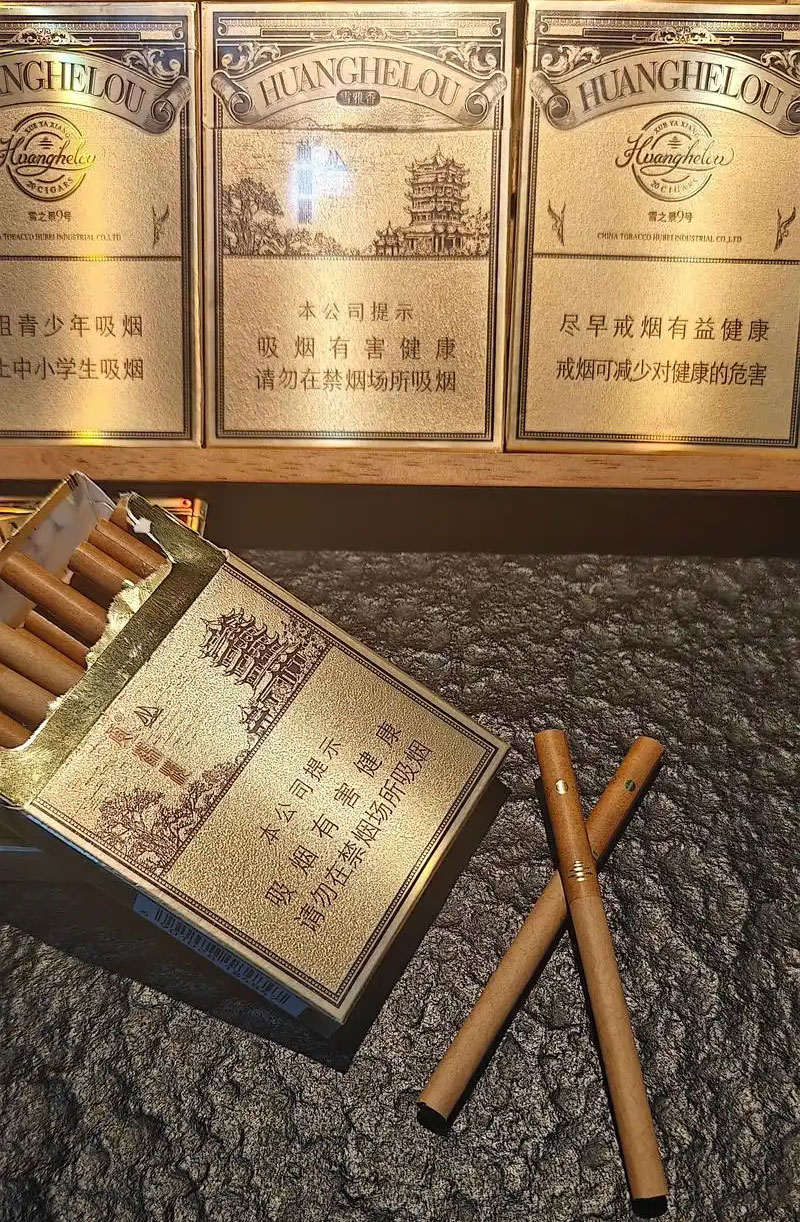 ANGHELOU
XUE YA XIANG
Huanghelou
20 CIGARS
雪之景9号
TOBACCO HUBEI INDUSTRIAL CO.,LTD
阻青少年吸烟
止中小学生吸烟
HUANGHELOU
雪雅香
本公司提示
吸烟有害健康
请勿在禁烟场所吸烟
HUANGHELOU
XUE YA XIANG
Huanghelou
20 CIGARS
雪之景9号
CHINA TOBACCO HUBEI INDUSTRIAL CO.,LTD
尽早戒烟有益健康
戒烟可减少对健康的危害
本公司提示
吸烟有害健康
请勿在禁烟场所吸烟